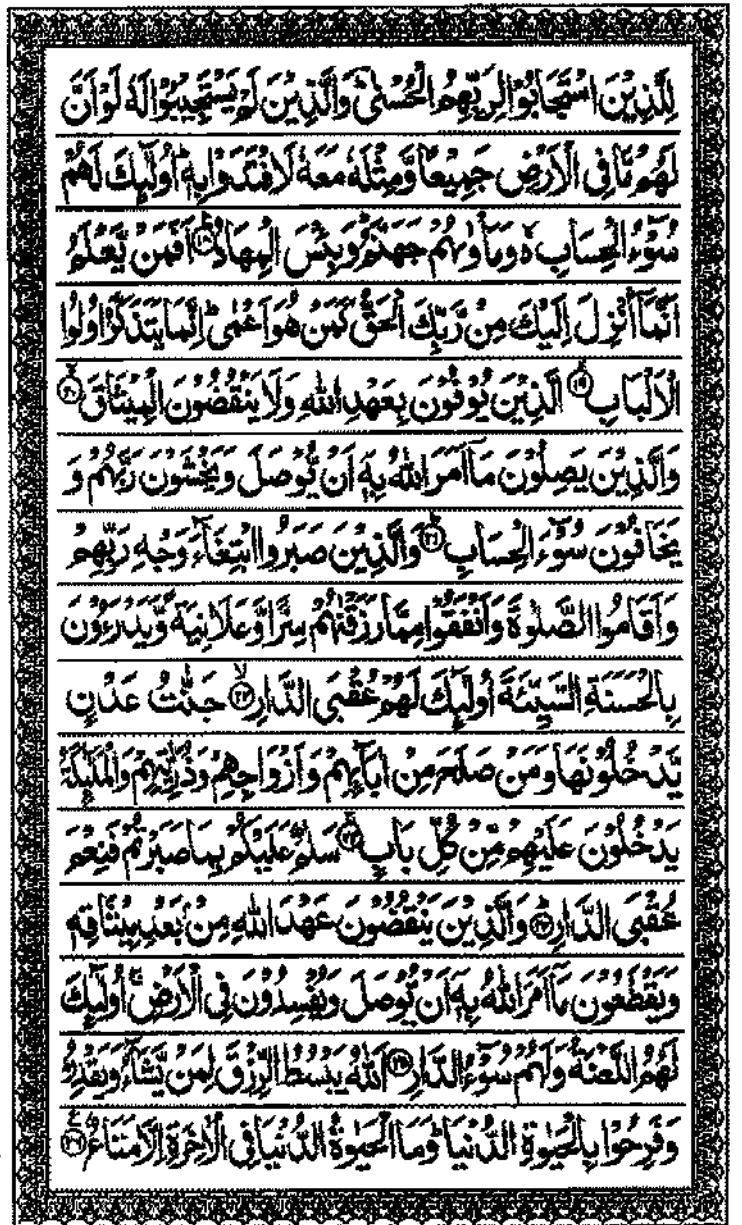 لِلَّذِيْنَ اسْتَجَابُوْا لِرَبِّهِمُ الْحُسْنٰىؕ وَالَّذِيْنَ لَمْ يَسْتَجِيْبُوْا لَهٗ لَوْ اَنَّ
لَهُمْ مَّا فِى الْاَرْضِ جَمِيْعًا وَّمِثْلَهٗ مَعَهٗ لَافْتَدَوْا بِهٖؕ اُولٰٓئِكَ لَهُمْ
سُوْٓءُ الْحِسَابِ ۙ۬ وَمَاْوٰىهُمْ جَهَنَّمُؕ وَبِئْسَ الْمِهَادُ ﴿۱۸﴾ اَفَمَنْ يَّعْلَمُ
اَنَّمَاۤ اُنْزِلَ اِلَيْكَ مِنْ رَّبِّكَ الْحَقُّ كَمَنْ هُوَ اَعْمٰىؕ اِنَّمَا يَتَذَكَّرُ اُولُوا
الْاَلْبَابِ ﴿۱۹﴾ الَّذِيْنَ يُوْفُوْنَ بِعَهْدِ اللّٰهِ وَلَا يَنْقُضُوْنَ الْمِيْثَاقَ ﴿۲۰﴾
وَالَّذِيْنَ يَصِلُوْنَ مَاۤ اَمَرَ اللّٰهُ بِهٖۤ اَنْ يُّوْصَلَ وَيَخْشَوْنَ رَبَّهُمْ وَ
يَخَافُوْنَ سُوْٓءَ الْحِسَابِ ﴿۲۱﴾ وَالَّذِيْنَ صَبَرُوا ابْتِغَآءَ وَجْهِ رَبِّهِمْ
وَاَقَامُوا الصَّلٰوةَ وَاَنْفَقُوْا مِمَّا رَزَقْنٰهُمْ سِرًّا وَّعَلَانِيَةً وَّيَدْرَءُوْنَ
بِالْحَسَنَةِ السَّيِّئَةَ اُولٰٓئِكَ لَهُمْ عُقْبَى الدَّارِ ﴿۲۲﴾ جَنّٰتُ عَدْنٍ
يَّدْخُلُوْنَهَا وَمَنْ صَلَحَ مِنْ اٰبَآئِهِمْ وَاَزْوَاجِهِمْ وَذُرِّيّٰتِهِمْ وَالْمَلٰٓئِكَةُ
يَدْخُلُوْنَ عَلَيْهِمْ مِّنْ كُلِّ بَابٍ ﴿۲۳﴾ سَلٰمٌ عَلَيْكُمْ بِمَا صَبَرْتُمْ فَنِعْمَ
عُقْبَى الدَّارِ ﴿۲۴﴾ وَالَّذِيْنَ يَنْقُضُوْنَ عَهْدَ اللّٰهِ مِنْۢ بَعْدِ مِيْثَاقِهٖ
وَيَقْطَعُوْنَ مَاۤ اَمَرَ اللّٰهُ بِهٖۤ اَنْ يُّوْصَلَ وَيُفْسِدُوْنَ فِى الْاَرْضِۙ اُولٰٓئِكَ
لَهُمُ اللَّعْنَةُ وَلَهُمْ سُوْٓءُ الدَّارِ ﴿۲۵﴾ اَللّٰهُ يَبْسُطُ الرِّزْقَ لِمَنْ يَّشَآءُ وَيَقْدِرُؕ
وَفَرِحُوْا بِالْحَيٰوةِ الدُّنْيَاؕ وَمَا الْحَيٰوةُ الدُّنْيَا فِى الْاٰخِرَةِ اِلَّا مَتَاعٌ ﴿۲۶﴾